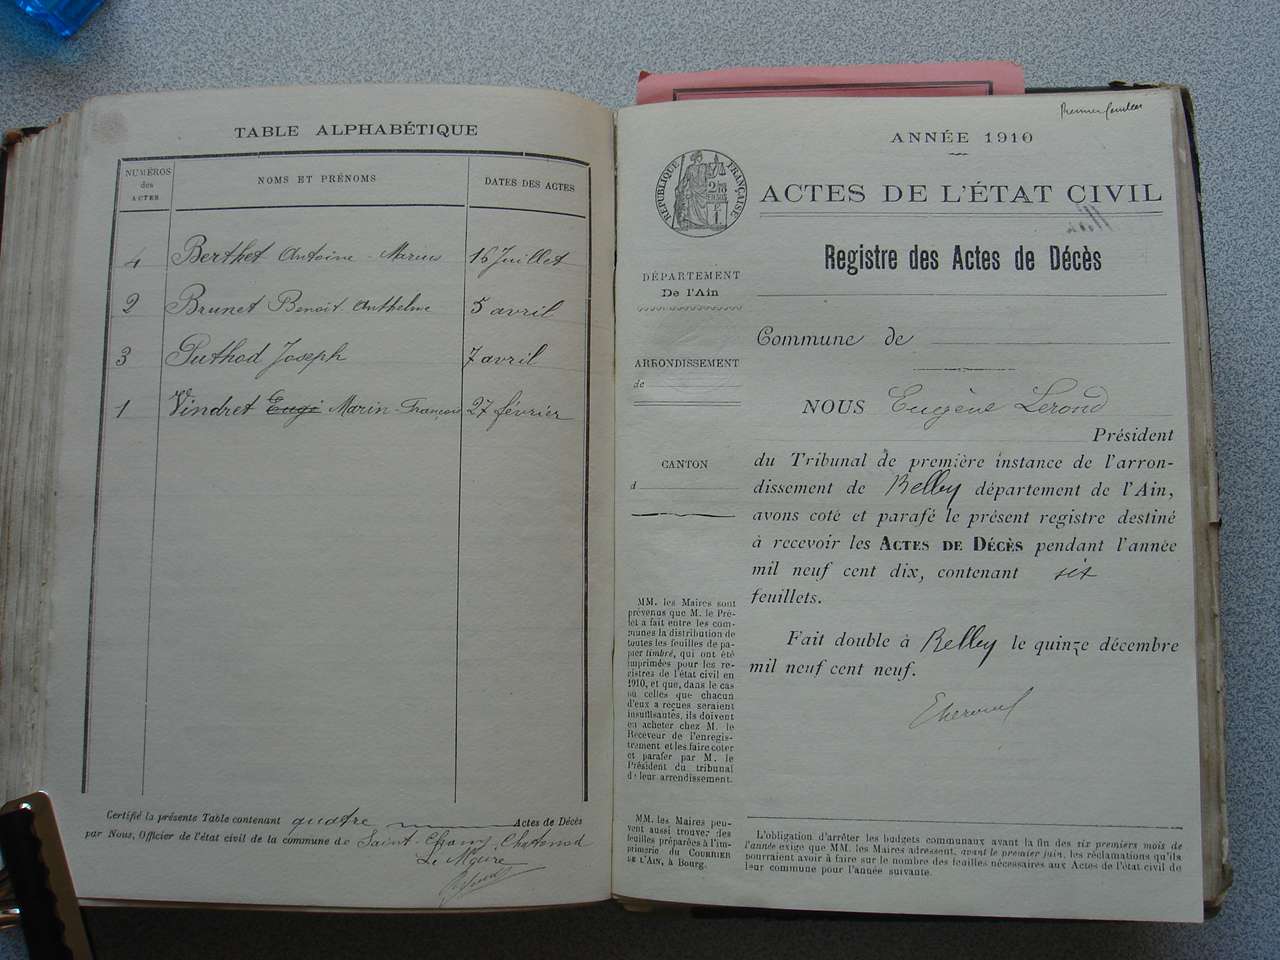 TABLE ALPHABÉTIQUE
NUMÉROS
des
ACTES
NOMS ET PRÉNOMS
DATES DES ACTES
4 Berthet Antoine-Marius 16 Juillet
2 Brunet Benoit-Anthelme 5 avril
3 Puthod Joseph 7 avril
1 Vindret Eugè Marin-François 27 février
Certifié la présente Table contenant quatre Actes de Décès
par Nous, Officier de l'état civil de la commune de Saint-Champ-Chatonod
Le Maire
Premier feuillet
ANNÉE 1910
RÉPUBLIQUE FRANÇAISE
ACTES DE L'ÉTAT CIVIL
Registre des Actes de Décès
DÉPARTEMENT
De l'Ain
ARRONDISSEMENT
de
CANTON
d
MM. les Maires sont
prévenus que M. le Pré-
fet a fait entre les com-
munes la distribution de
toutes les feuilles de pa-
pier timbré, qui ont été
imprimées pour les re-
gistres de l'état civil en
1910, et que, dans le cas
où celles que chacun
d'eux a reçues seraient
insuffisantes, ils doivent
en acheter chez M. le
Receveur de l'enregis-
trement et les faire coter
et parafer par M. le
Président du tribunal
de leur arrondissement.
MM. les Maires peu-
vent aussi trouver des
feuilles préparées à l'im-
primerie du COURRIER
DE L'AIN, à Bourg.
Commune de
NOUS Eugène Lerond
Président
du Tribunal de première instance de l'arron-
dissement de Belley département de l'Ain,
avons coté et parafé le présent registre destiné
à recevoir les ACTES DE DÉCÈS pendant l'année
mil neuf cent dix, contenant six
feuillets.
Fait double à Belley le quinze décembre
mil neuf cent neuf.
L'obligation d'arrêter les budgets communaux avant la fin des six premiers mois de
l'année exige que MM. les Maires adressent, avant le premier juin, les réclamations qu'ils
pourraient avoir à faire sur le nombre des feuilles nécessaires aux Actes de l'état civil de
leur commune pour l'année suivante.